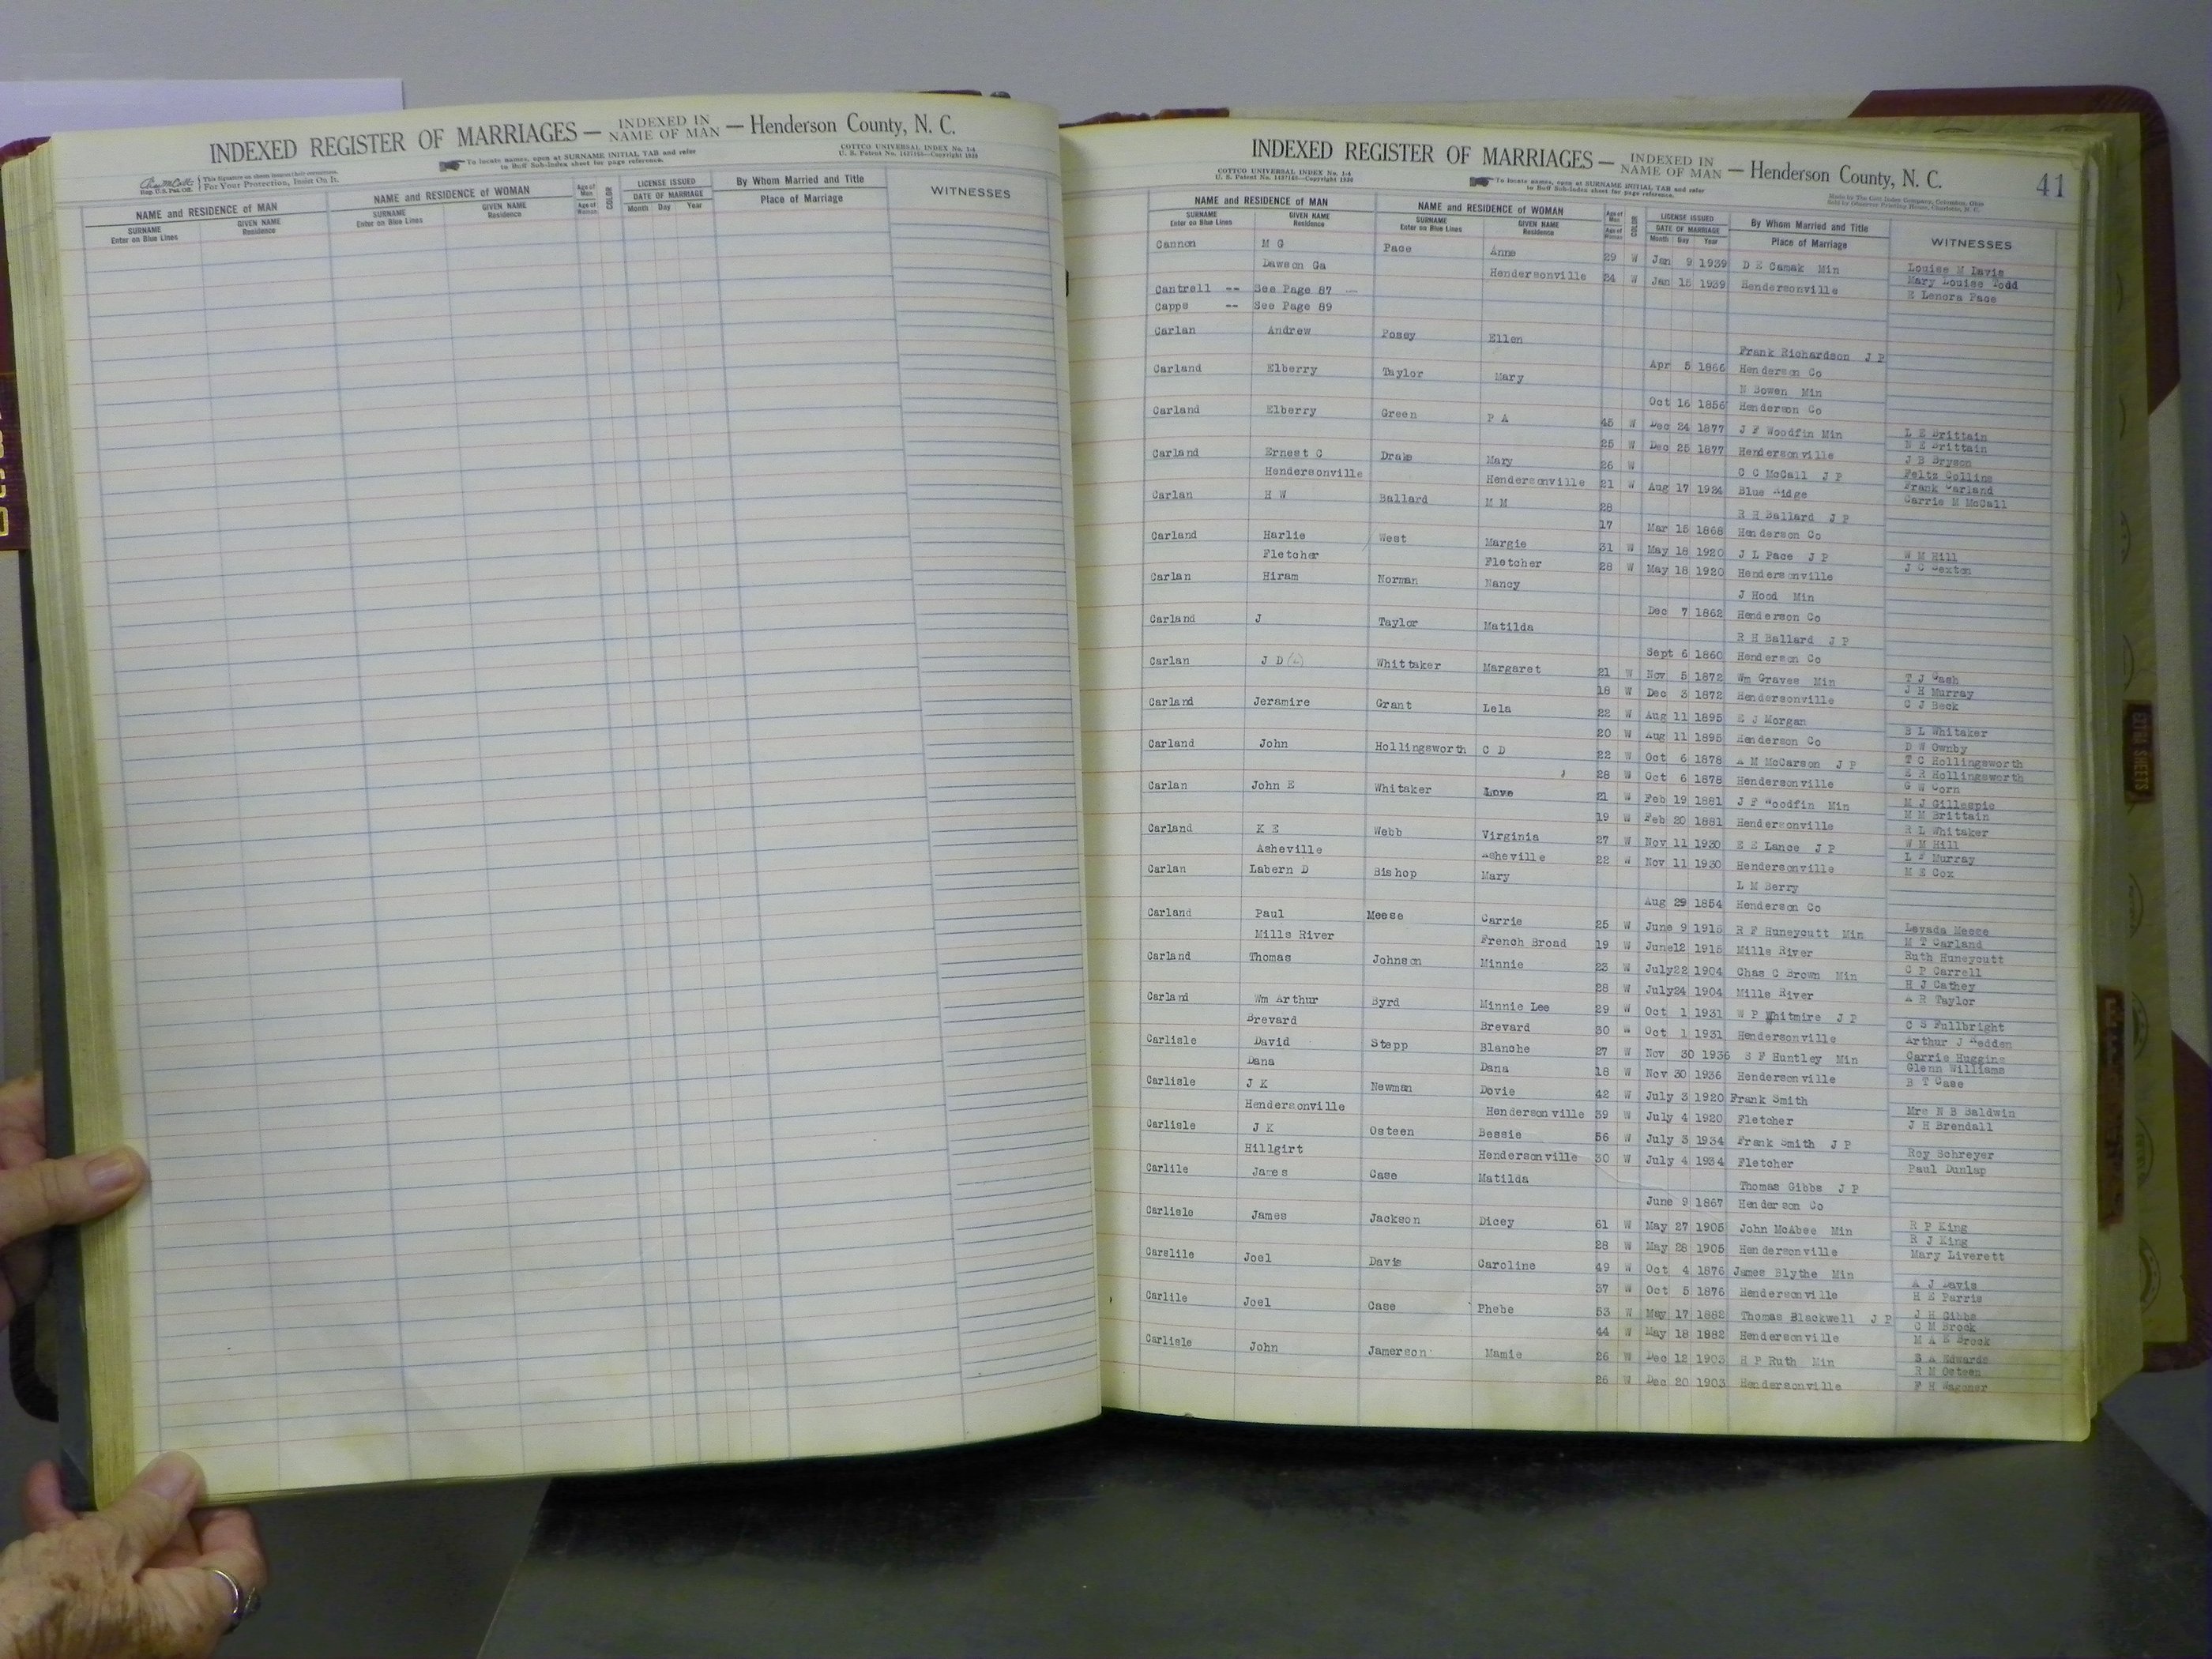 INDEXED REGISTER OF MARRIAGES — INDEXED IN NAME OF MAN — Henderson County, N. C.
To locate names, open at SURNAME INITIAL TAB and refer to Buff Sub-Index sheet for page reference.
COTTCO UNIVERSAL INDEX No. 1-4
U. S. Patent No. 1437145—Copyright 1920
For Your Protection, Insist On It.
NAME and RESIDENCE OF MAN NAME and RESIDENCE OF WOMAN Age of Man Age of Woman COLOR LICENSE ISSUED DATE OF MARRIAGE By Whom Married and Title Place of Marriage WITNESSES
SURNAME Enter on Blue Lines GIVEN NAME Residence SURNAME Enter on Blue Lines GIVEN NAME Residence Month Day Year
INDEXED REGISTER OF MARRIAGES — INDEXED IN NAME OF MAN — Henderson County, N. C. 41
COTTCO UNIVERSAL INDEX No. 1-4
U. S. Patent No. 1437145—Copyright 1920
To locate names, open at SURNAME INITIAL TAB and refer to Buff Sub-Index sheet for page reference.
Made by The Cott Index Company, Columbus, Ohio
Sold by Observer Printing House, Charlotte, N. C.
NAME and RESIDENCE OF MAN NAME and RESIDENCE OF WOMAN Age of Man Age of Woman COLOR LICENSE ISSUED DATE OF MARRIAGE By Whom Married and Title Place of Marriage WITNESSES
SURNAME Enter on Blue Lines GIVEN NAME Residence SURNAME Enter on Blue Lines GIVEN NAME Residence Month Day Year
Cannon M G Pace Anne 29 W Jan 9 1939 D E Camak Min Louise M Davis
Dawson Ga Hendersonville 24 W Jan 15 1939 Hendersonville Mary Louise Todd
E Lenora Pace
Cantrell -- See Page 87
Capps -- See Page 89
Carlan Andrew Posey Ellen Frank Richardson J P
Apr 5 1866 Henderson Co
Carland Elberry Taylor Mary N Bowen Min
Oct 16 1856 Henderson Co
Carland Elberry Green P A 45 W Dec 24 1877 J F Woodfin Min L E Brittain
25 W Dec 25 1877 Hendersonville N E Brittain
J B Bryson
Carland Ernest C Drake Mary 26 W C C McCall J P Feltz Collins
Hendersonville Hendersonville 21 W Aug 17 1924 Blue Ridge Frank Carland
Carrie M McCall
Carlan H W Ballard M M 28 R H Ballard J P
17 Mar 15 1868 Henderson Co
Carland Harlie West Margie 31 W May 18 1920 J L Pace J P W M Hill
Fletcher Fletcher 28 W May 18 1920 Hendersonville J C Sexton
Carlan Hiram Norman Nancy J Hood Min
Dec 7 1862 Henderson Co
Carland J Taylor Matilda R H Ballard J P
Sept 6 1860 Henderson Co
Carlan J D Whittaker Margaret 21 W Nov 5 1872 Wm Graves Min T J Cash
18 W Dec 3 1872 Hendersonville J H Murray
C J Beck
Carland Jeramire Grant Lela 22 W Aug 11 1895 E J Morgan
20 W Aug 11 1895 Henderson Co B L Whitaker
D W Ownby
Carland John Hollingsworth C D 22 W Oct 6 1878 A M McCarson J P T C Hollingsworth
28 W Oct 6 1878 Hendersonville E R Hollingsworth
G W Corn
Carlan John E Whitaker Love 21 W Feb 19 1881 J F Woodfin Min M J Gillespie
19 W Feb 20 1881 Hendersonville M M Brittain
R L Whitaker
Carland K E Webb Virginia 27 W Nov 11 1930 E E Lance J P W M Hill
Asheville Asheville 22 W Nov 11 1930 Hendersonville L F Murray
M E Cox
Carlan Labern D Bishop Mary L M Berry
Aug 29 1854 Henderson Co
Carland Paul Meese Carrie 25 W June 9 1915 R F Huneycutt Min Levada Meese
Mills River French Broad 19 W June12 1915 Mills River M T Carland
Ruth Huneycutt
Carland Thomas Johnson Minnie 23 W July22 1904 Chas C Brown Min C P Carrell
28 W July24 1904 Mills River H J Cathey
A R Taylor
Carland Wm Arthur Byrd Minnie Lee 29 W Oct 1 1931 W P Whitmire J P
Brevard Brevard 30 W Oct 1 1931 Hendersonville C S Fullbright
Arthur J Hedden
Carlisle David Stepp Blanche 27 W Nov 30 1936 S F Huntley Min Carrie Huggins
Dana Dana 18 W Nov 30 1936 Hendersonville Glenn Williams
B T Case
Carlisle J K Newman Dovie 42 W July 3 1920 Frank Smith
Hendersonville Hendersonville 39 W July 4 1920 Fletcher Mrs N B Baldwin
J H Brendall
Carlisle J K Osteen Bessie 56 W July 3 1934 Frank Smith J P
Hillgirt Hendersonville 30 W July 4 1934 Fletcher Roy Schreyer
Paul Dunlap
Carlile James Case Matilda Thomas Gibbs J P
June 9 1867 Henderson Co
Carlisle James Jackson Dicey 61 W May 27 1905 John McAbee Min R P King
28 W May 28 1905 Hendersonville R J King
Mary Liverett
Carslile Joel Davis Caroline 49 W Oct 4 1876 James Blythe Min
37 W Oct 5 1876 Hendersonville A J Davis
H E Parris
Carlile Joel Case Phebe 53 W May 17 1882 Thomas Blackwell J P J H Gibbs
44 W May 18 1882 Hendersonville C M Brock
M A E Brock
Carlisle John Jamerson Mamie 26 W Dec 12 1903 H P Ruth Min S A Edwards
26 W Dec 20 1903 Hendersonville R M Osteen
F H Waggner
EXTRA SHEETS